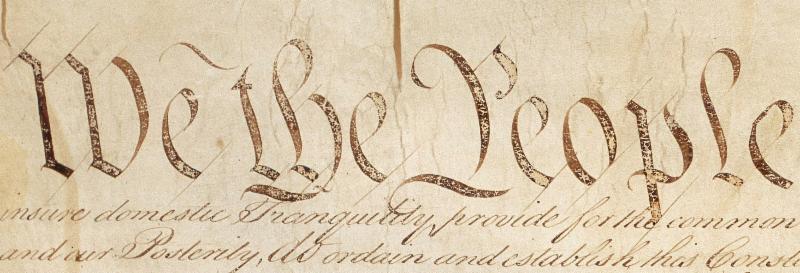 We the People
insure domestic Tranquility, provide for the common
and our Posterity, do ordain and establish this Consti